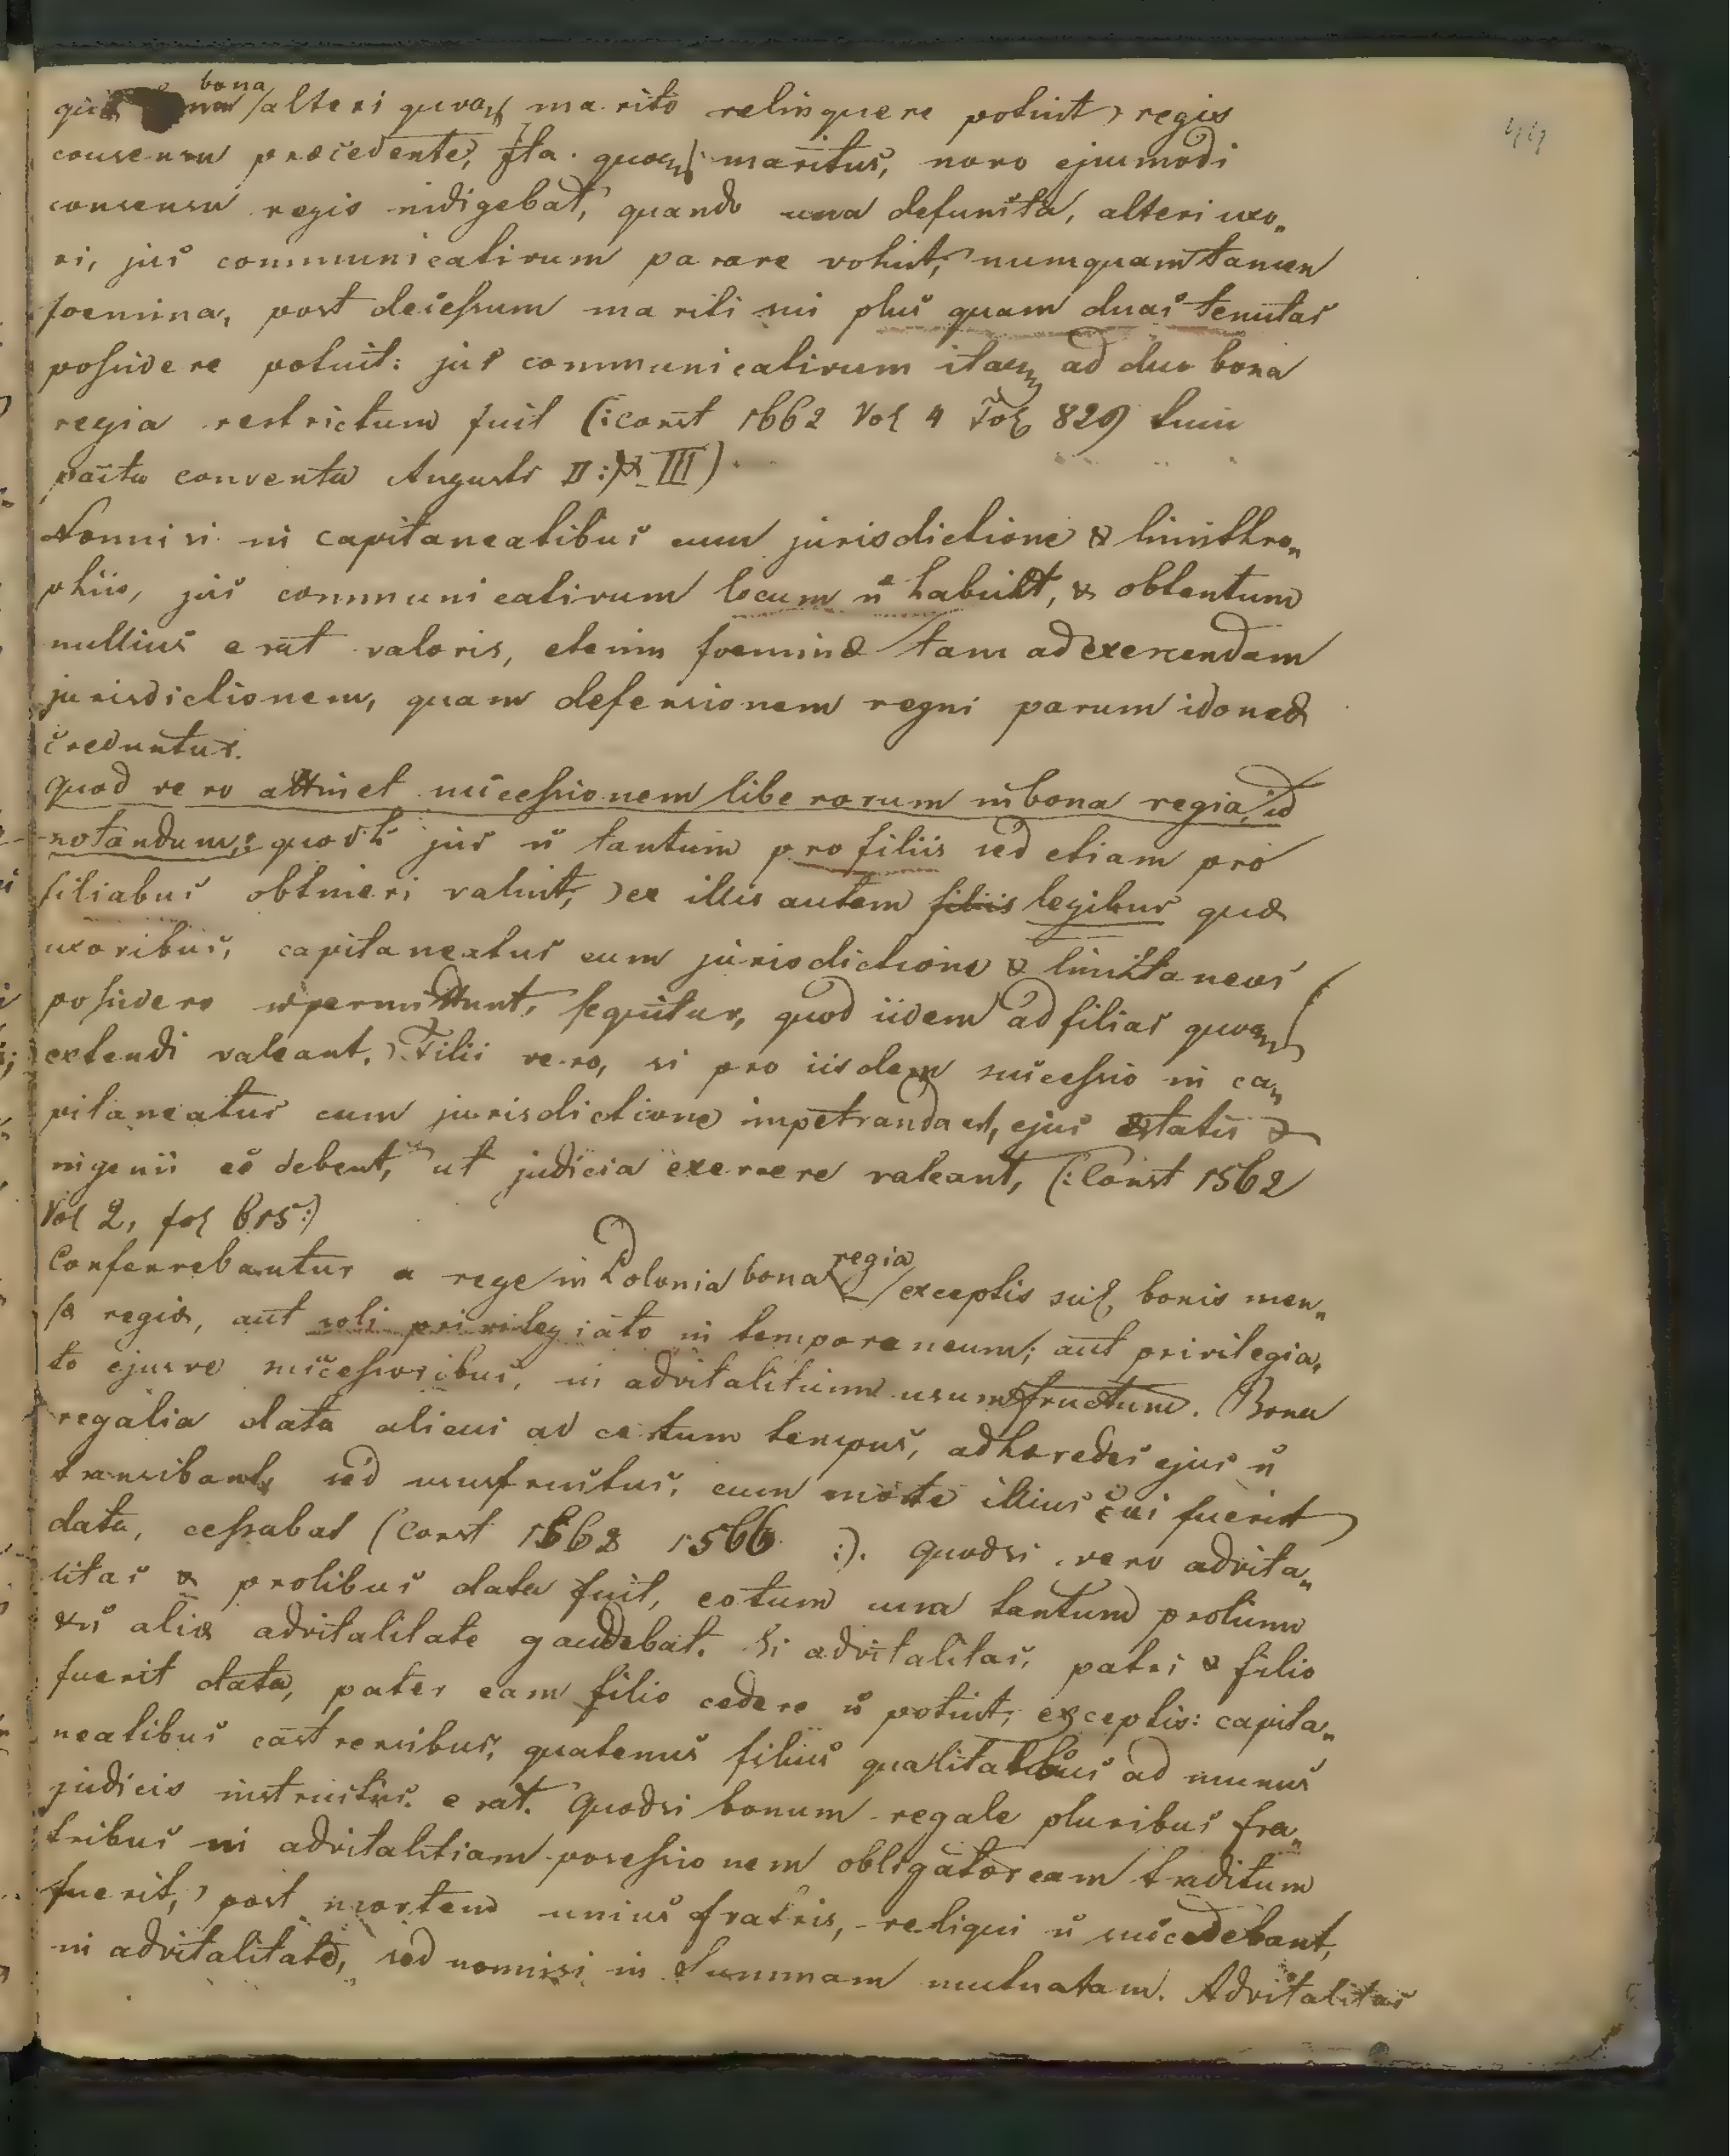 bona alteri quoq marito relinquere potuit, regis
consensu præcedente, Ita quoq maritus, novo ejusmodi
consensu regis indigebat, quando una defuncta, alteri uxo„
ri, jus communicativum parare voluit, numquam tamen
foemina, post decessum mariti sui plus quam duas tenutas
possidere potuit: jus communicativum itaq ad duo bona
regia restrictum fuit (: const 1662 Vol 4 Fol 829 tum
pacta conventa Augusti II :) & III)
Nonnisi in capitaneatibus cum jurisdictione & limithro„
phiis, jus communicativum locum n̄ habuit, & obtentum
nullius erat valoris, etenim foeminæ tam ad exercendam
jurisdictionem, quam defensionem regni parum idoneæ
creduntur.
Quod vero attinet successionem liberorum in bona regia, id
notandum: quod h jus n̄ tantum pro filiis sed etiam pro
filiabus obtineri valuit, ex illis autem filiis legibus quæ
uxoribus, capitaneatus cum jurisdictione & limitaneos
possidere n̄ permittunt, sequitur, quod iidem ad filias quoq
extendi valeant. Filii vero, si pro iisdem successio in ca„
pitaneatus cum jurisdictione impetranda est, ejus ætatis &
ingenii eē debent, ut judicia exercere valeant, (: Const 1562
Vol 2, fol 615 :)
Conferrebantur a rege in Polonia bona regia exceptis scil, bonis men„
sæ regiæ, aut soli privilegiato in temporaneum; aut privilegia„
to ejusve successoribus, in advitalitium usumfructum. Bona
regalia data alicui ad certum tempus, ad hæredes ejus n̄
transibant, sed ususfructus, cum morte illius cui fuerint
data, cessabat (Const 1562 1566 :). Quodsi vero advita„
litas & prolibus data fuit, eotum una tantum prolium
& n̄ aliæ advitalitate gaudebat. Si advitalitas, patri & filio
fuerit data, pater eam filio cedere n̄ potuit, exceptis: capita„
neatibus castrensibus, quatenus filius qualitatibus ad munus
judicis instructus erat. Quodsi bonum regale pluribus fra„
tribus in advitalitiam possessionem obligatoream traditum
fuerit, post mortem unius fratris, reliqui n̄ succedebant,
in advitalitate, sed nonnisi in Summam mutuatam. Advitalitas